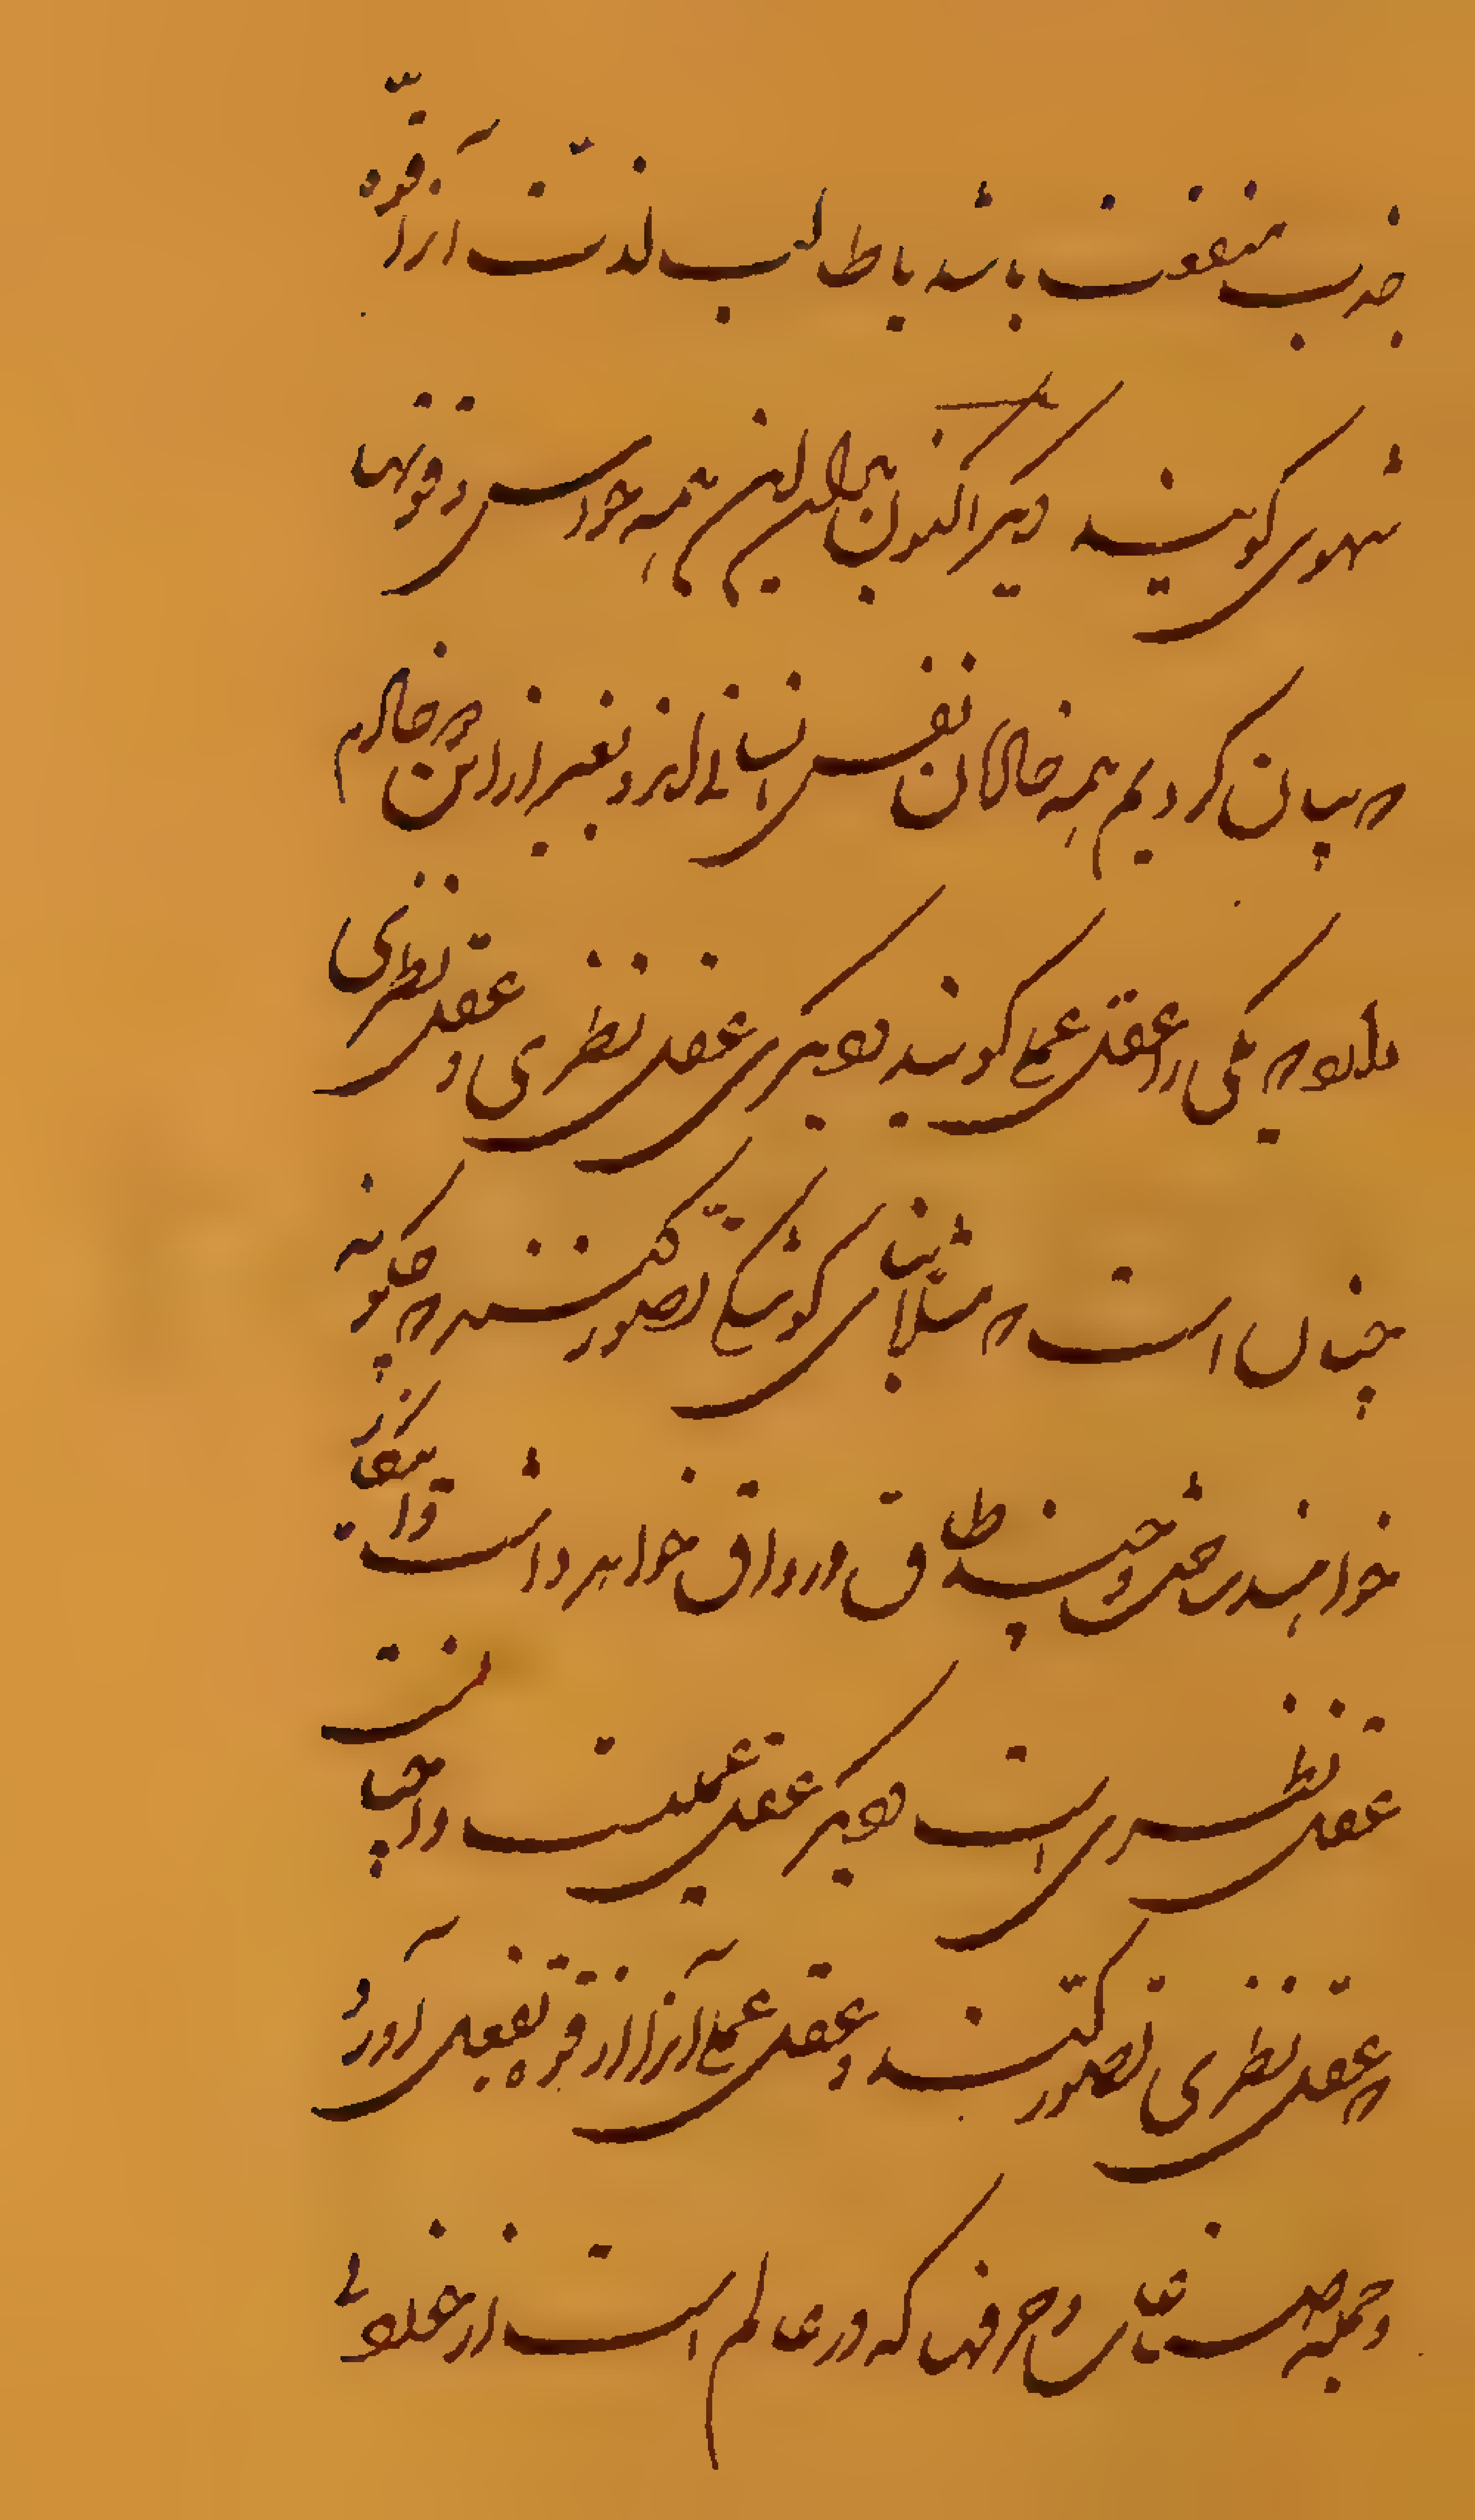 جذب منفعت باشد یا طالب لذت آنرا قوّه
شهوی کویند دیکر اکنون بدانکه این همه حواس و قوتها
که بیان کردیم همه خادمان نفس انسانی اند و بغیر از این چه خادم
دارد که یکی را عقل عملی کویند و دیکری عقل نظری و عقل نظری
چنان است که مثلا بنای کوشکی تصور کنند که چکونه
خواهند ساختن و چند طاق و رواق خواهد داشت
عقل نظری است و دیکر عقل عملیست و آنچنانست
که عقل نظری تصور کند و عقل عملی آنرا از قوه بفعل آورد
و جمله صناعتها و حرفتها که در عالم است از عقل